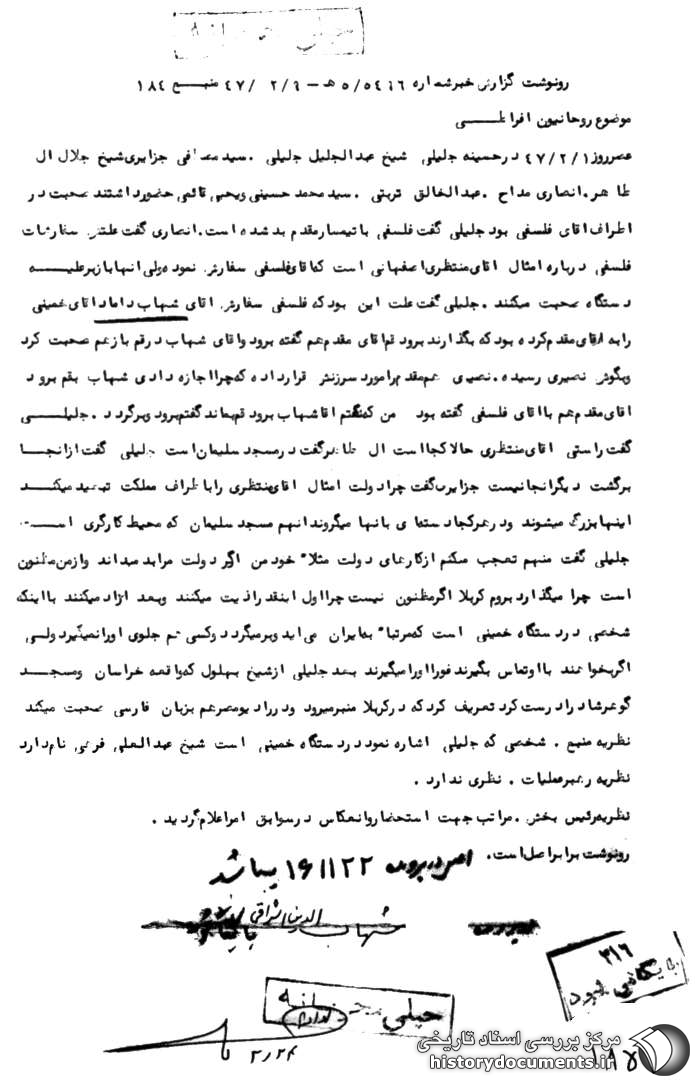 خیلی محرمانه
رونوشت گزارش خبر شماره ۵/۵۴۱۶ هـ – ۴۷/۲/۹ منبع ۱۸۴
موضوع روحانیون افراطی
عصر روز ۴۷/۲/۱ در حسینه جلیلی شیخ عبدالجلیل جلیلی . سید مصطفی جزایری شیخ جلال ال
طاهر . انصاری مداح . عبدالخالق تربتی . سید محمد حسینی ویحیی قائمی حضور داشتند صحبت در
اطراف اقای فلسفی بود جلیلی گفت فلسفی با تیمسار مقدم بد شده است . انصاری گفت علتش سفارشات
فلسفی درباره امثال اقای منتظری اصفهانی است که اقای فلسفی سفارش نموده ولی انها باز برعلیه
دستگاه صحبت میکنند . جلیلی گفت علت این بود که فلسفی سفارش اقای شهاب داماد اقای خمینی
را به اقای مقدم کرده بود که بگذارند برود قم اقای مقدم هم گفته برود واقای شهاب در قم باز هم صحبت کرد
وبگوش نصیری رسیده . نصیری هم مقدم را مورد سرزنش قرار داده که چرا اجازه دادی شهاب بقم برود
اقای مقدم هم با اقای فلسفی گفته بود من که نگفتم اقا شهاب برود قم بماند گفتم برود وبرگردد . جلیلی
گفت راستی اقای منتظری حالا کجا است ال طاهر گفت در مسجد سلیمان است جلیلی گفت از انجا
برگشت دیگر انجا نیست جزایری گفت چرا دولت امثال اقای منتظری را باطراف مملکت تبعید میکند
اینها بزرگ میشوند ودر هر کجا دسته ای بانها میگروند انهم مسجد سلیمان که محیط کارگری است
جلیلی گفت منهم تعجب میکنم از کارهای دولت مثلا" خود من اگر دولت مرا بد میداند واز من مظنون
است چرا میگذارد بروم کربلا اگر مظنون نیست چرا اول اینقدر اذیت میکنند وبعد ازاد میکنند با اینکه
شخصی در دستگاه خمینی است که مرتبا" به ایران می اید وبرمیگردد وکسی هم جلوی اورا نمیگیرد ولی
اگر بخواهند با او تماس بگیرند فورا اورا میگیرند بعد جلیلی از شیخ بهلول که واقعه خراسان ومسجد
گوهرشاد را درست کرد تعریف کرد که در کربلا منبر میرود ودر رادیو مصر هم بزبان فارسی صحبت میکند
نظریه منبع . شخصی که جلیلی اشاره نمود در دستگاه خمینی است شیخ عبدالعلی قرهی نام دارد
نظریه رهبر عملیات . نظری ندارد .
نظریه رئیس بخش . مراتب جهت استحضار وانعکاس در سوابق امر اعلام گردید .
رونوشت برابر اصل است .
اصل در پرونده ۱۶۱۱۲۲ میباشد
شهاب الدین اشراقی
۳۱۶
بایگانی شود
خیلی محرمانه
۲/۲۴
مرکز بررسی اسناد تاریخی
historydocuments.ir